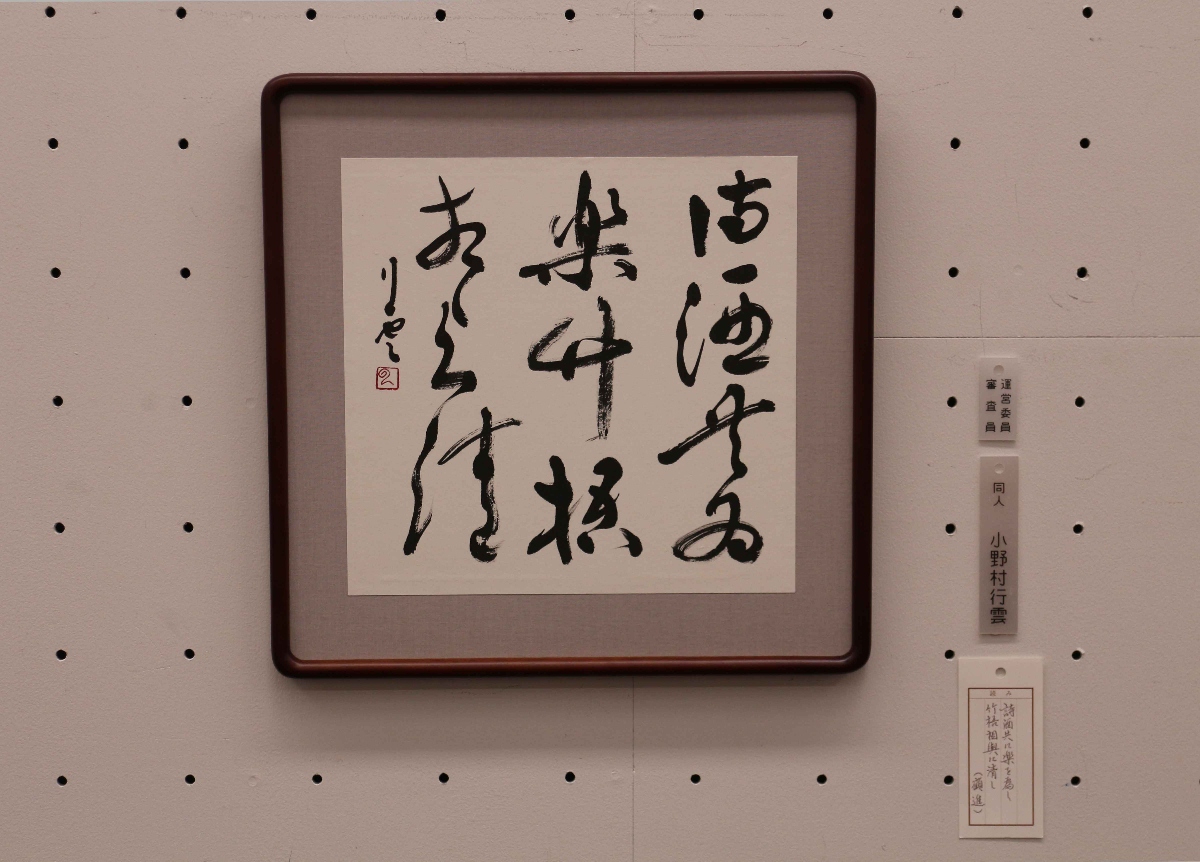 詩酒共為
楽竹梧
相与清
行雲
運営委員
審査員
同人 小野村行雲
読み
詩酒共に楽を為し
竹梧相與に清し